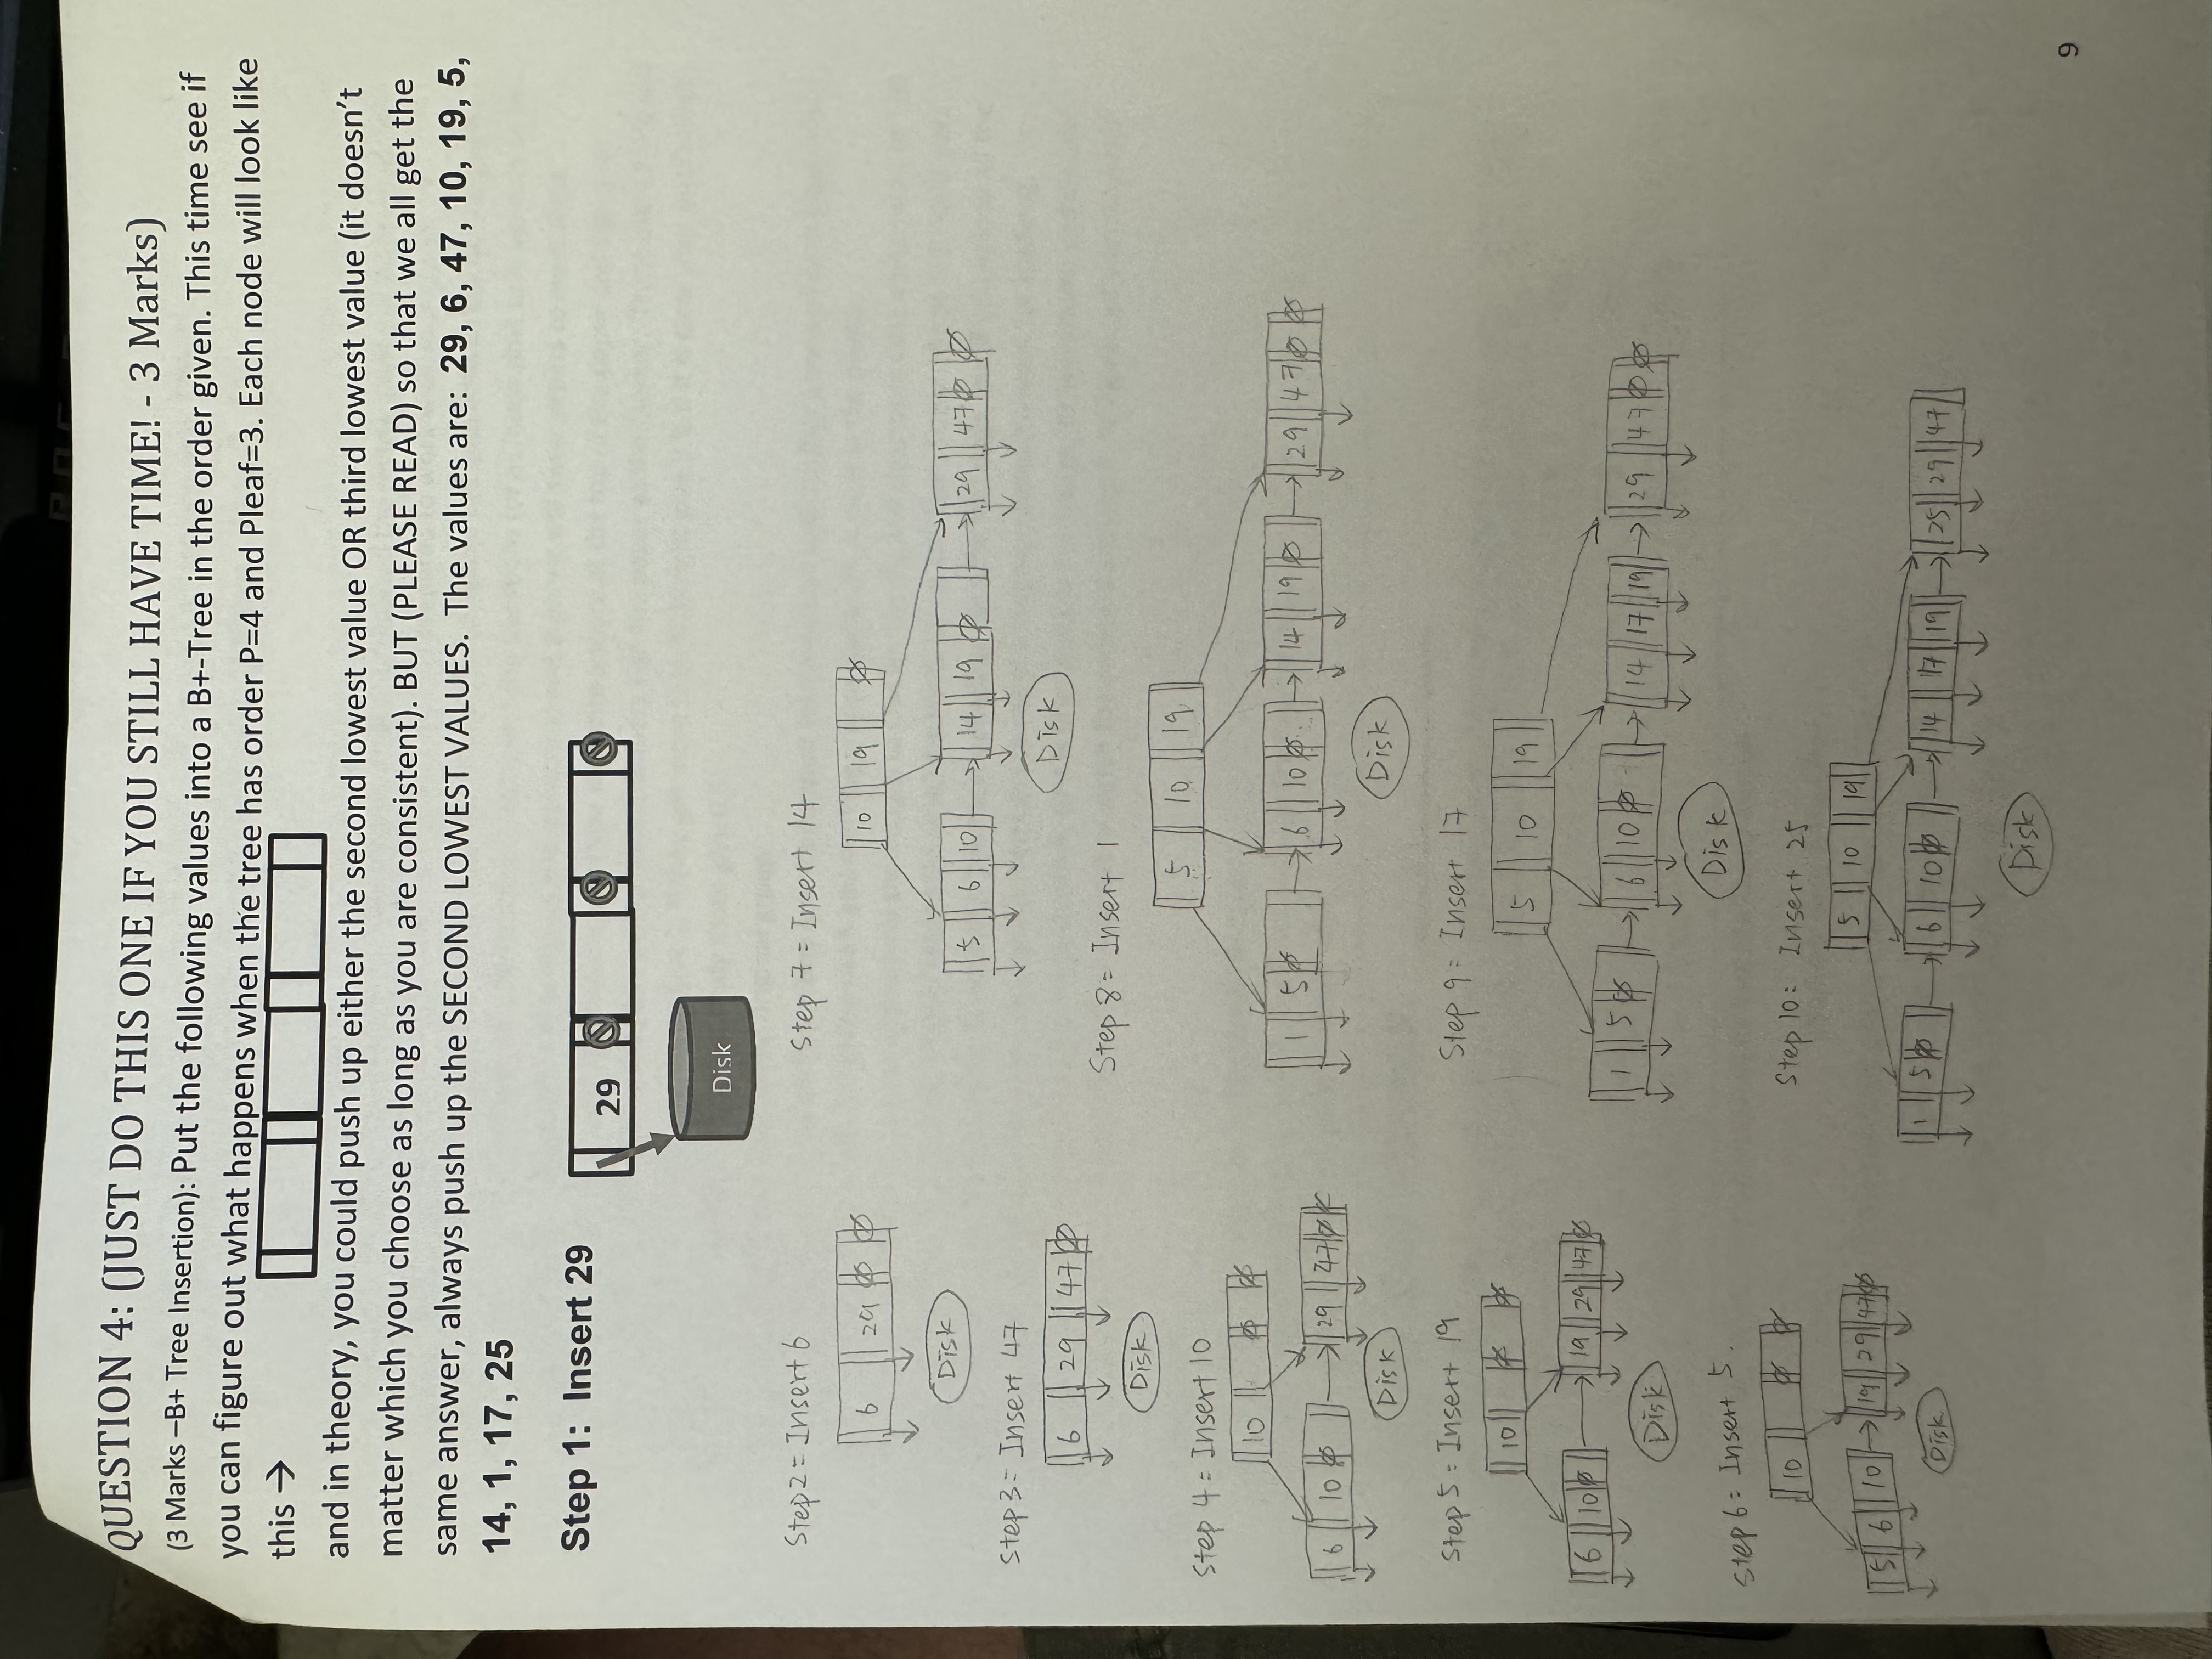 QUESTION 4: (JUST DO THIS ONE IF YOU STILL HAVE TIME! - 3 Marks)
(3 Marks –B+ Tree Insertion): Put the following values into a B+-Tree in the order given. This time see if
you can figure out what happens when the tree has order P=4 and Pleaf=3. Each node will look like
this →
and in theory, you could push up either the second lowest value OR third lowest value (it doesn't
matter which you choose as long as you are consistent). BUT (PLEASE READ) so that we all get the
same answer, always push up the SECOND LOWEST VALUES. The values are: 29, 6, 47, 10, 19, 5,
14, 1, 17, 25
Step 1: Insert 29
29
Disk
Step2= Insert 6
6 29
Disk
Step3= Insert 47
6 29 47
Disk
Step 4= Insert 10
10
6 10 29 47
Disk
Step 5= Insert 19
10
6 10 19 29 47
Disk
Step 6= Insert 5.
10
5 6 10 19 29 47
Disk
Step 7= Insert 14
10 19
5 6 10 14 19 29 47
Disk
Step 8= Insert 1
5 10 19
1 5 6 10 14 19 29 47
Disk
Step 9= Insert 17
5 10 19
1 5 6 10 14 17 19 29 47
Disk
Step 10: Insert 25
5 10 19
1 5 6 10 14 17 19 25 29 47
Disk
9